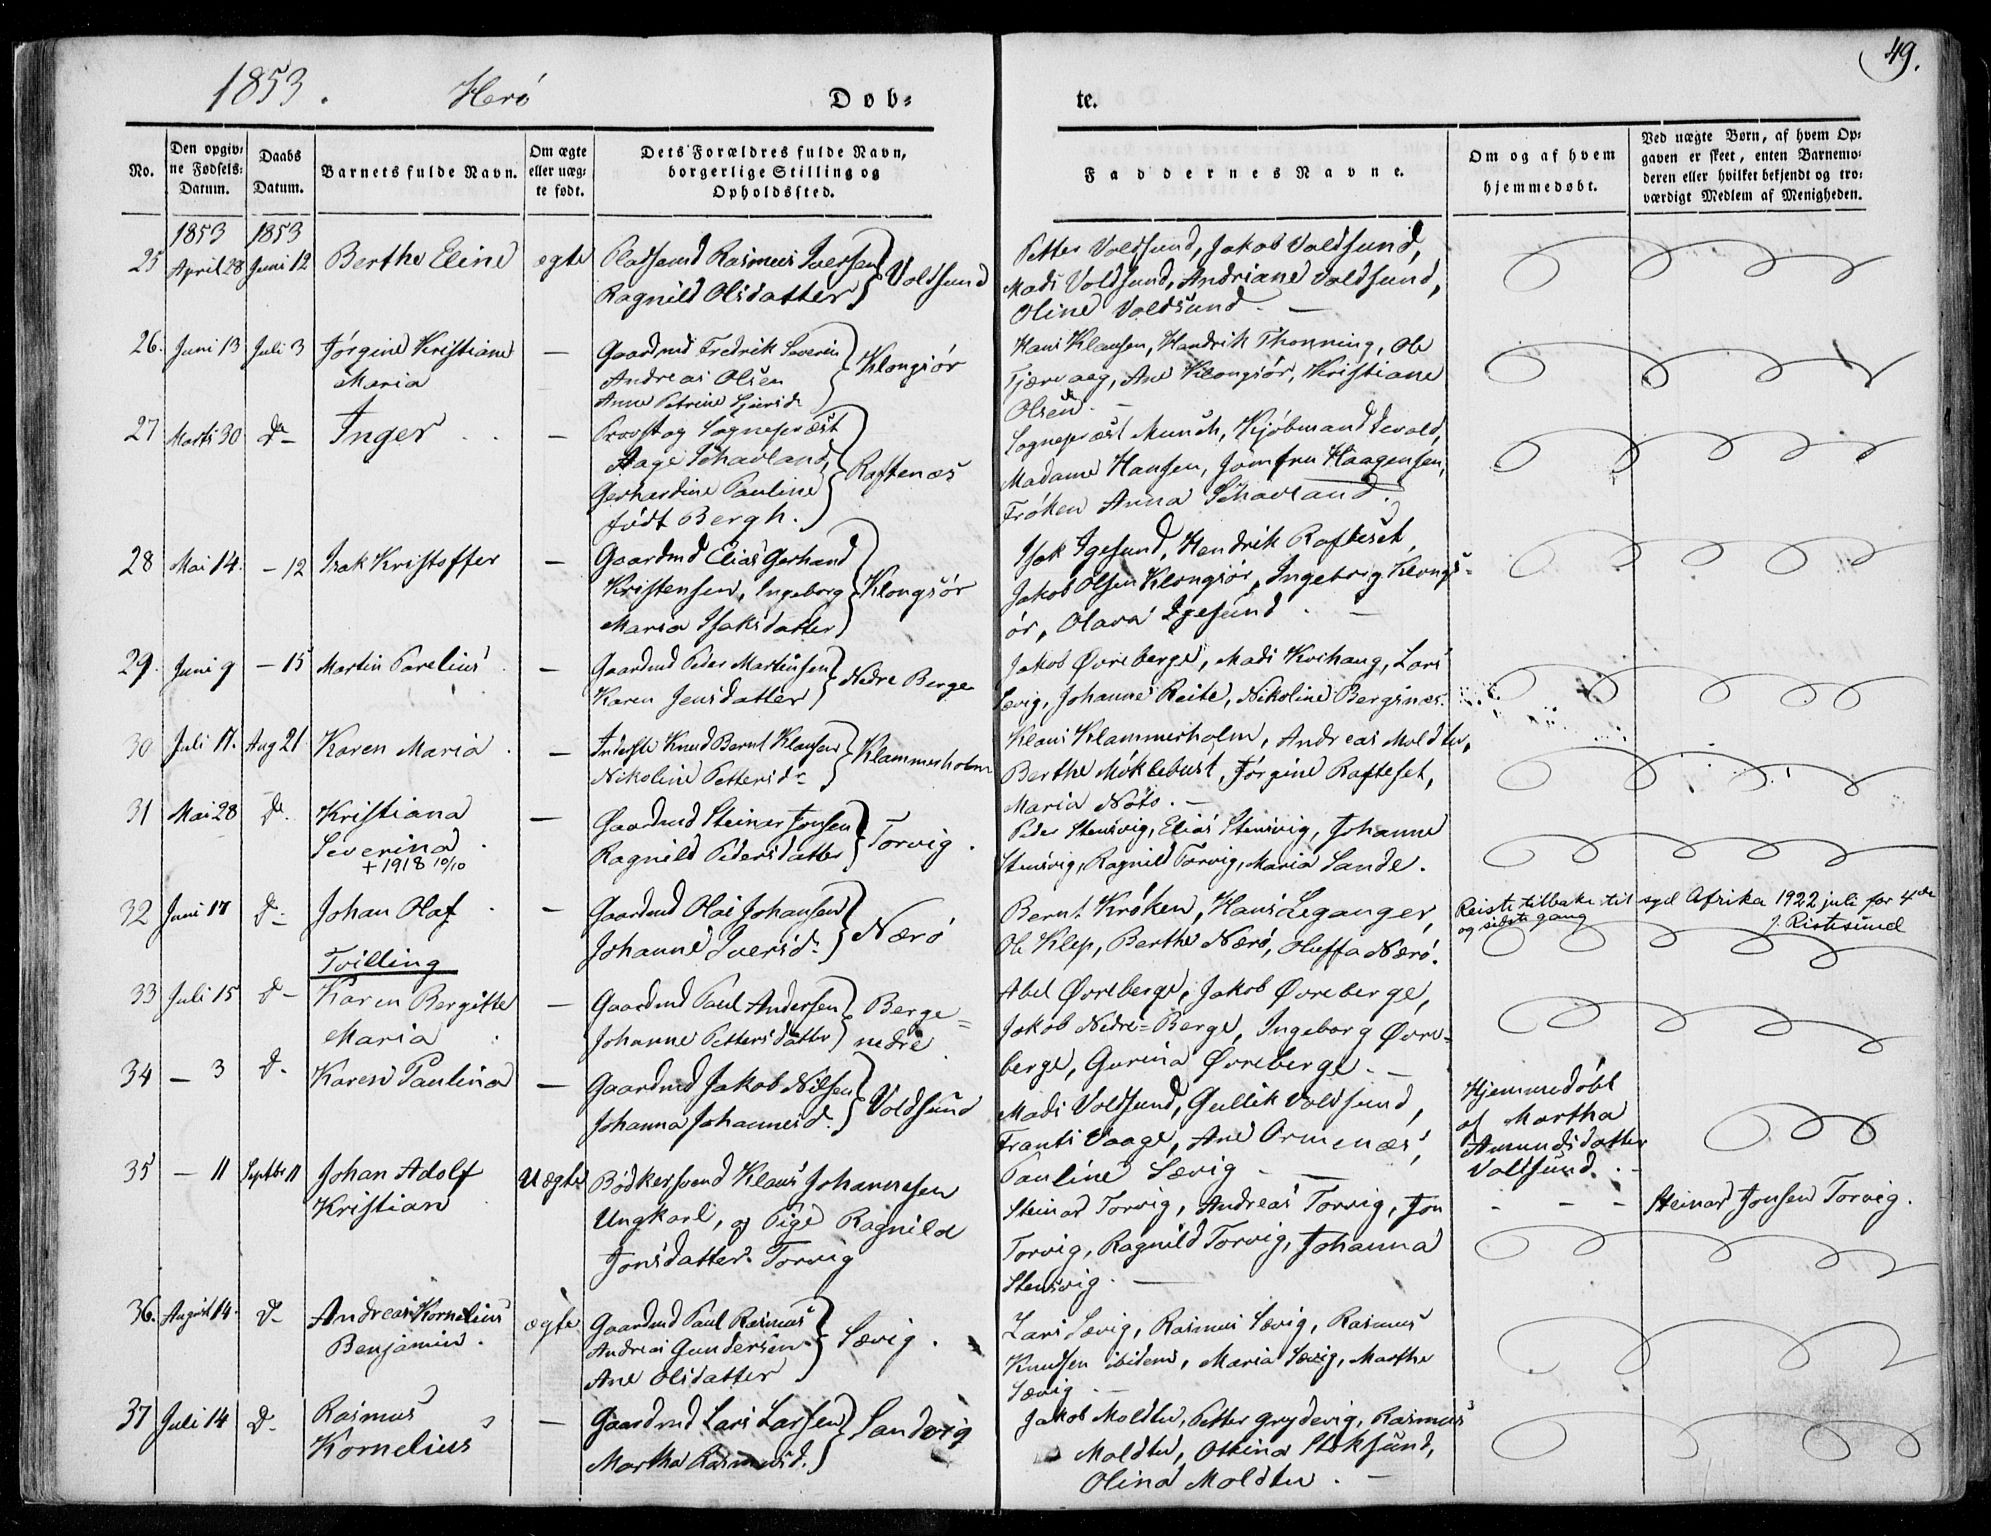 1853. Herö Døb-
te. 49.
No. Den opgiv-
ne Fødsels-
Datum. Daabs
Datum. Barnets fulde Navn. Om ægte
eller uæg-
te født. Dets Forældres fulde Navn,
borgerlige Stilling og
Opholdssted. Faddernes Navne. Om og af hvem
hjemmedøbt. Ved uægte Børn, af hvem Op-
gaven er skeet, enten Barnemo-
deren eller hvilket bekjendt og tro-
værdigt Medlem af Menigheden.
1853 1853
25 April 28 Juni 12 Berthe Eline egte Pladsmd Rasmus Iversen
Ragnild Olsdatter Voldsund
Petter Voldsund, Jakob Voldsund,
Mads Voldsund, Andriane Voldsund,
Oline Voldsund.
26. Juni 13 Juli 3 Jörgine Kristiane
Maria — Gaardmd Fredrik Severin
Andreas Olsen
Anne Petrine Sjursd. Klongsör
Hans Klausen, Hendrik Thonning, Ole
Tjærvaag, Ane Klongsör, Kristiane
Olsen.
27 Marts 30 do Inger — Provst og Sognepræst
Aage Schavland,
Gerhardine Pauline
födt Bergh. Raftenæs
Sognepræst Munch, Kjöbmand Devold,
Madame Hansen, Jomfru Haagensen,
Fröken Anna Schavland.
28 Mai 14. - 12 Isak Kristoffer — Gaardmd Elias Gerhard
Kristensen, Ingeborg
Maria Isaksdatter Klongsör
Isak Igesund, Hendrik Rafteset,
Jakob Olsen Klongsör, Ingeborg Klongs-
ör, Olava Igesund.
29. Juni 9 - 15 Martin Parelius — Gaardmd Peder Martinsen
Karen Jensdatter Nedre Berge
Jakob Øvreberge, Mads Kvihaug, Lars
Sævig, Johanne Reite, Nikoline Bergsnæs.
30 Juli 17. Aug 21 Karen Maria — Inderste Knud Bernt Klausen
Nikoline Pettersdr Klammerholm
Klaus Klammerholm, Andreas Moldtu,
Berthe Möklebust, Jörgine Rafteset,
Maria Nötö.
31 Mai 28 do. Kristiana
Severina
+ 1918 10/10 — Gaardmd Steinar Jonsen
Ragnild Pedersdatter Torvig.
Peder Stensvig, Elias Stensvig, Johanne
Stensvig, Ragnild Torvig, Maria Sande.
32 Juni 17 do Johan Olaf
Tvilling — Gaardmd Olai Johansen
Johanne Iversdr Nærö
Bernt Kröken, Hans Leganger,
Ole Klep, Berthe Nærö, Oluffa Nærö.
Reiste tilbake til syd Afrika 1922 juli for 4de
og sidste gang J. Ristesund
33 Juli 15 do Karen Bergitte
Maria — Gaardmd Paul Andersen
Johanne Pettersdatter Berge-
nedre
Abel Øvreberge, Jakob Øvreberge,
Jakob Nedre-Berge, Ingeborg Øvre-
berge, Gurina Øvreberge.
34 - 3 do. Karen Paulina — Gaardmd Jakob Nilsen
Johanna Johannesd. Voldsund
Mads Voldsund, Gullik Voldsund,
Frants Vaage, Ane Ormenæs,
Pauline Sævig
Hjemmedöbt
af Martha
Amundsdatter
Voldsund.
35 - 11 Septbr 11 Johan Adolf
Kristian Uægte Bödkersvend Klaus Johannesen
Ungkarl, og Pige Ragnild
Jonsdatter Torvig
Steinar Torvig, Andreas Torvig, Jon
Torvig, Ragnild Torvig, Johanna
Stensvig.
- - - Steinar Jonsen Torvig.
36. August 14. do Andreas Kornelius
Benjamin. ægte Gaardmd Paul Rasmus
Andreas Gundersen
Ane Olsdatter Sævig.
Lars Sævig, Rasmus Sævig, Rasmus
Knudsen ibidem, Maria Sævig, Marthe
Sævig
37 Juli 14 do Rasmus
Kornelius — Gaardmd Lars Larsen
Martha Rasmusd. Sandvig
Jakob Moldtu, Petter Grydevig, Rasmus
Moldtu, Ottina Stoksund,
Olina Moldtu.